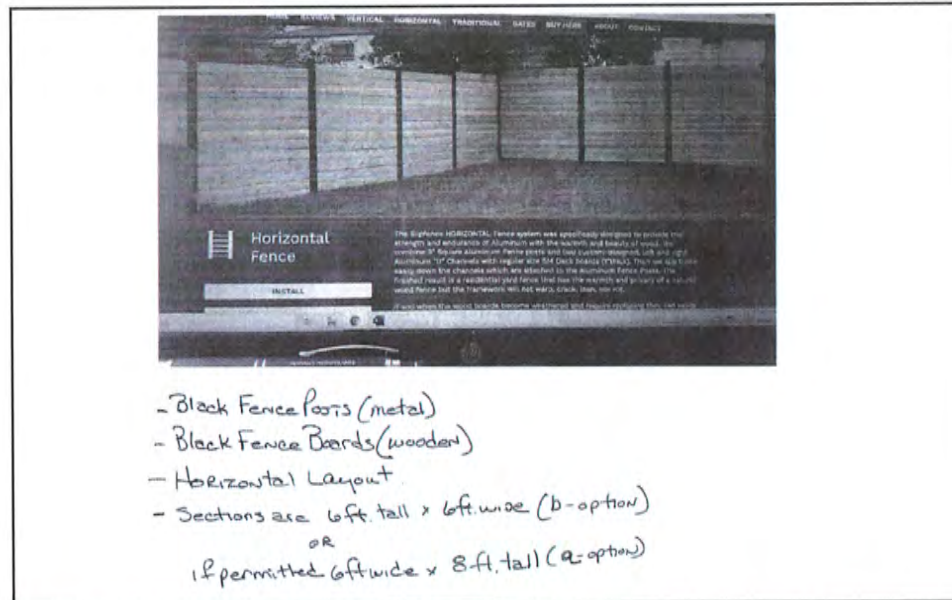 HOME REVIEWS VERTICAL HORIZONTAL TRADITIONAL GATES BUY HERE ABOUT CONTACT
Horizontal
Fence
INSTALL
The HORIZONTAL Fence system was specifically designed to provide the
strength and endurance of Aluminum with the warmth and beauty of wood. We
combine 3" Square aluminum Fence posts and two custom designed, Left and right
Aluminum "U" Channels with regular size 5/4 Deck boards Then we
easily down the channels which are attached to the Aluminum Fence Posts. The
finished result is a residential yard fence that has the warmth and privacy of a natural
wood fence but the framework will not warp, crack, lean, nor rot.
when the wood boards become weathered and require replacing they can easily
- Black Fence Posts (metal)
- Black Fence Boards (wooden)
- Horizontal Layout
- Sections are 6ft. tall x 6ft. wide (b-option)
OR
if permitted 6ft wide x 8-ft. tall (a-option)